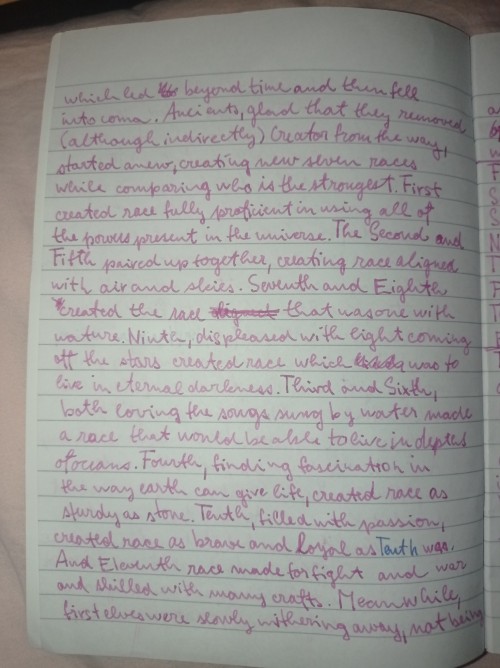 which led beyond time and then fell
into coma. Ancients, glad that they removed
(although indirectly) Creator from the way,
started anew, creating new seven races
while comparing who is the strongest. First
created race fully proficient in using all of
the powers present in the universe. The Second and
Fifth paired up together, creating race aligned
with air and skies. Seventh and Eighth
created the race aligned that was one with
nature. Ninth, displeased with light coming
off the stars created race which was to
live in eternal darkness. Third and Sixth,
both loving the songs sung by water made
a race that would be able to live in depths
of oceans. Fourth, finding fascination in
the way earth can give life, created race as
sturdy as stone. Tenth, filled with passion,
created race as brave and loyal as Tenth was.
And Eleventh race made for fight and war
and skilled with many crafts. Meanwhile,
first elves were slowly withering away, not being